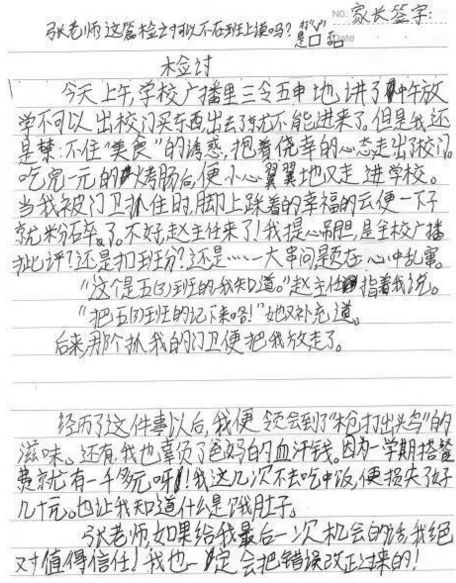 NO.
家长签字:
张老师这篇检讨可以不在班上读吗? 打"√"
是□ 否□
Date
检讨
今天上午,学校广播里三令五申地讲了中午放
学不可以出校门买东西,出去了就不能进来了。但是我还
是禁不住"美食"的诱惑,抱着侥幸的心态走出了校门。
吃完一元的烤肠后,便小心翼翼地又走进学校。
当我被门卫抓住时,脚上踩着的幸福的云便一下子
就粉碎了。不好,赵主任来了!我提心吊胆,是全校广播
批评?还是扣班分?还是……一大串问题在心中乱窜。
"这个是五(3)班的我知道。"赵主任指着我说。
"把五(3)班的记下来咯!"她又补充道。
后来,那个抓我的门卫便把我放走了。
经历了这件事以后,我便领会到了"枪打出头鸟"的
滋味。还有,我也辜负了爸妈的血汗钱。因为一学期搭餐
费就有一千多元呀!我这几次不去吃中饭,便损失了好
几十元。也让我知道什么是饿肚子。
张老师,如果给我最后一次机会的话,我绝
对值得信任!我也一定会把错误改正过来的!